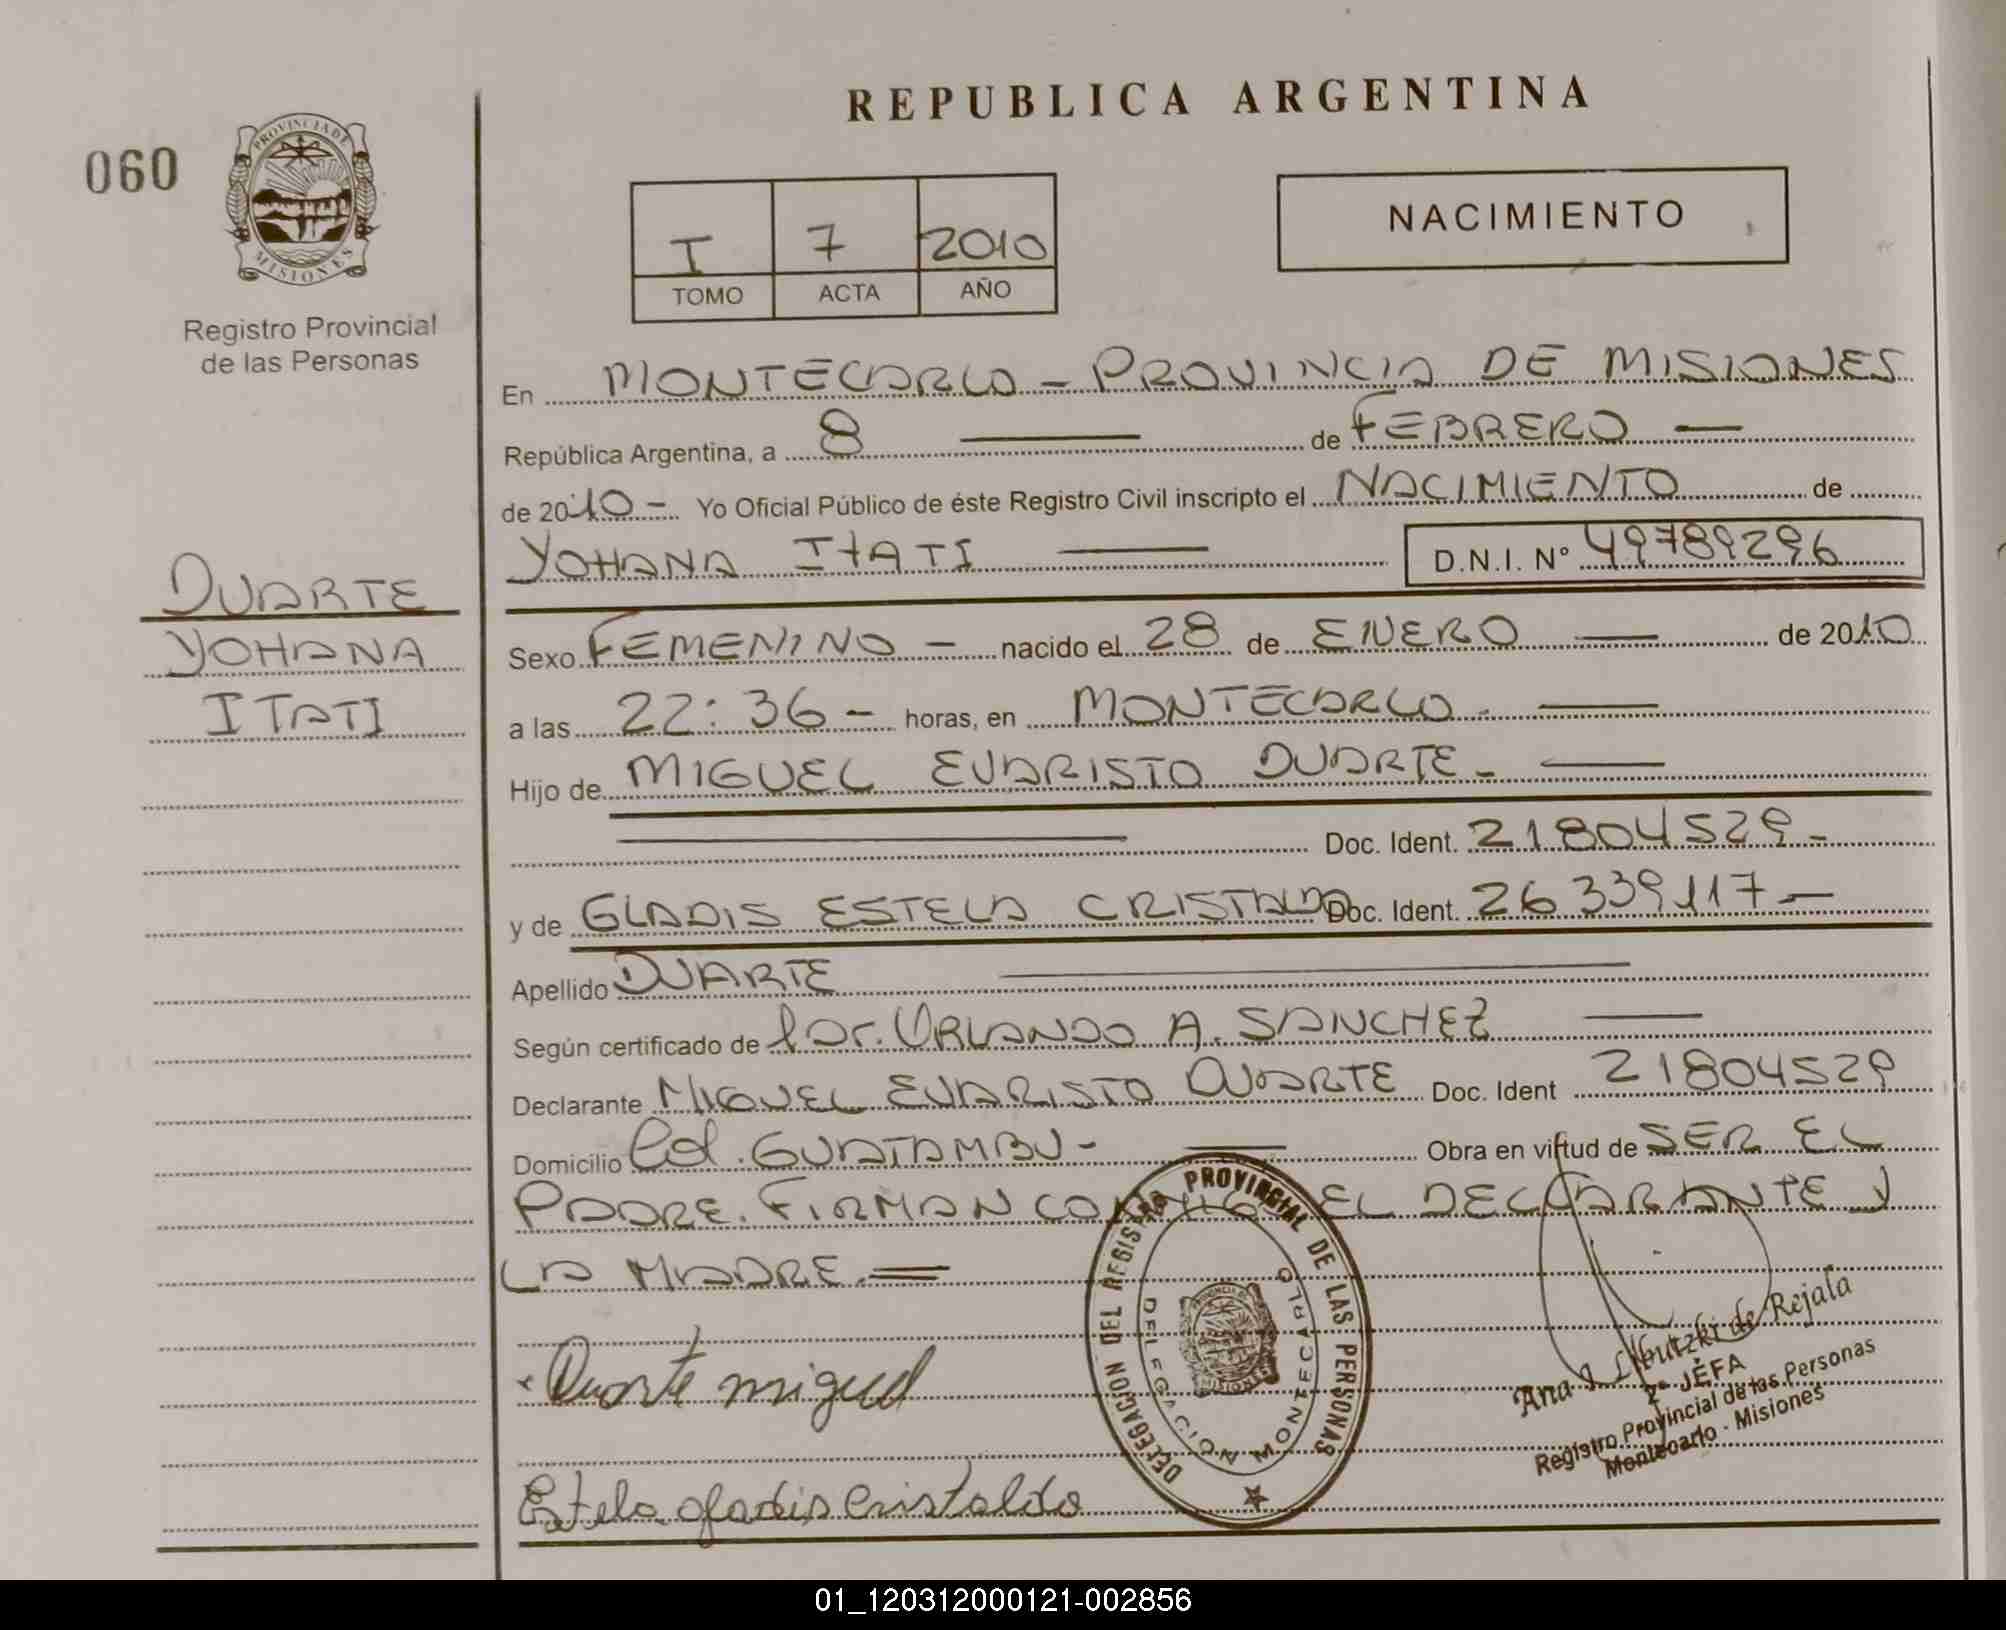 REPUBLICA ARGENTINA
060
PROVINCIA DE
MISIONES
Registro Provincial
de las Personas
I 7 2010
TOMO ACTA AÑO
NACIMIENTO
En MONTECARLO - PROVINCIA DE MISIONES
República Argentina, a 8 de FEBRERO
de 2010 - Yo Oficial Público de éste Registro Civil inscripto el NACIMIENTO de
YOHANA ITATI D.N.I. Nº 49789296
DUARTE
YOHANA
ITATI
Sexo FEMENINO - nacido el 28 de ENERO de 2010
a las 22:36 - horas, en MONTECARLO.
Hijo de MIGUEL EVARISTO DUARTE -
Doc. Ident. 21804529 -
y de GLADIS ESTELA CRISTALDO Doc. Ident. 26339117 -
Apellido DUARTE
Según certificado de Dr. ORLANDO A. SANCHEZ
Declarante MIGUEL EVARISTO DUARTE Doc. Ident 21804529
Domicilio Col. GUATAMBU - Obra en virtud de SER EL
PADRE. FIRMAN CONMIGO EL DECLARANTE Y
LA MADRE.=
Duarte miguel
Estela gladis Cristaldo
DELEGACION DEL REGISTRO PROVINCIAL DE LAS PERSONAS
DELEGACION MONTECARLO
PROVINCIA DE
MISIONES
Ana de Rejala
2º JEFA
Registro Provincial de las Personas
Montecarlo - Misiones
01_120312000121-002856